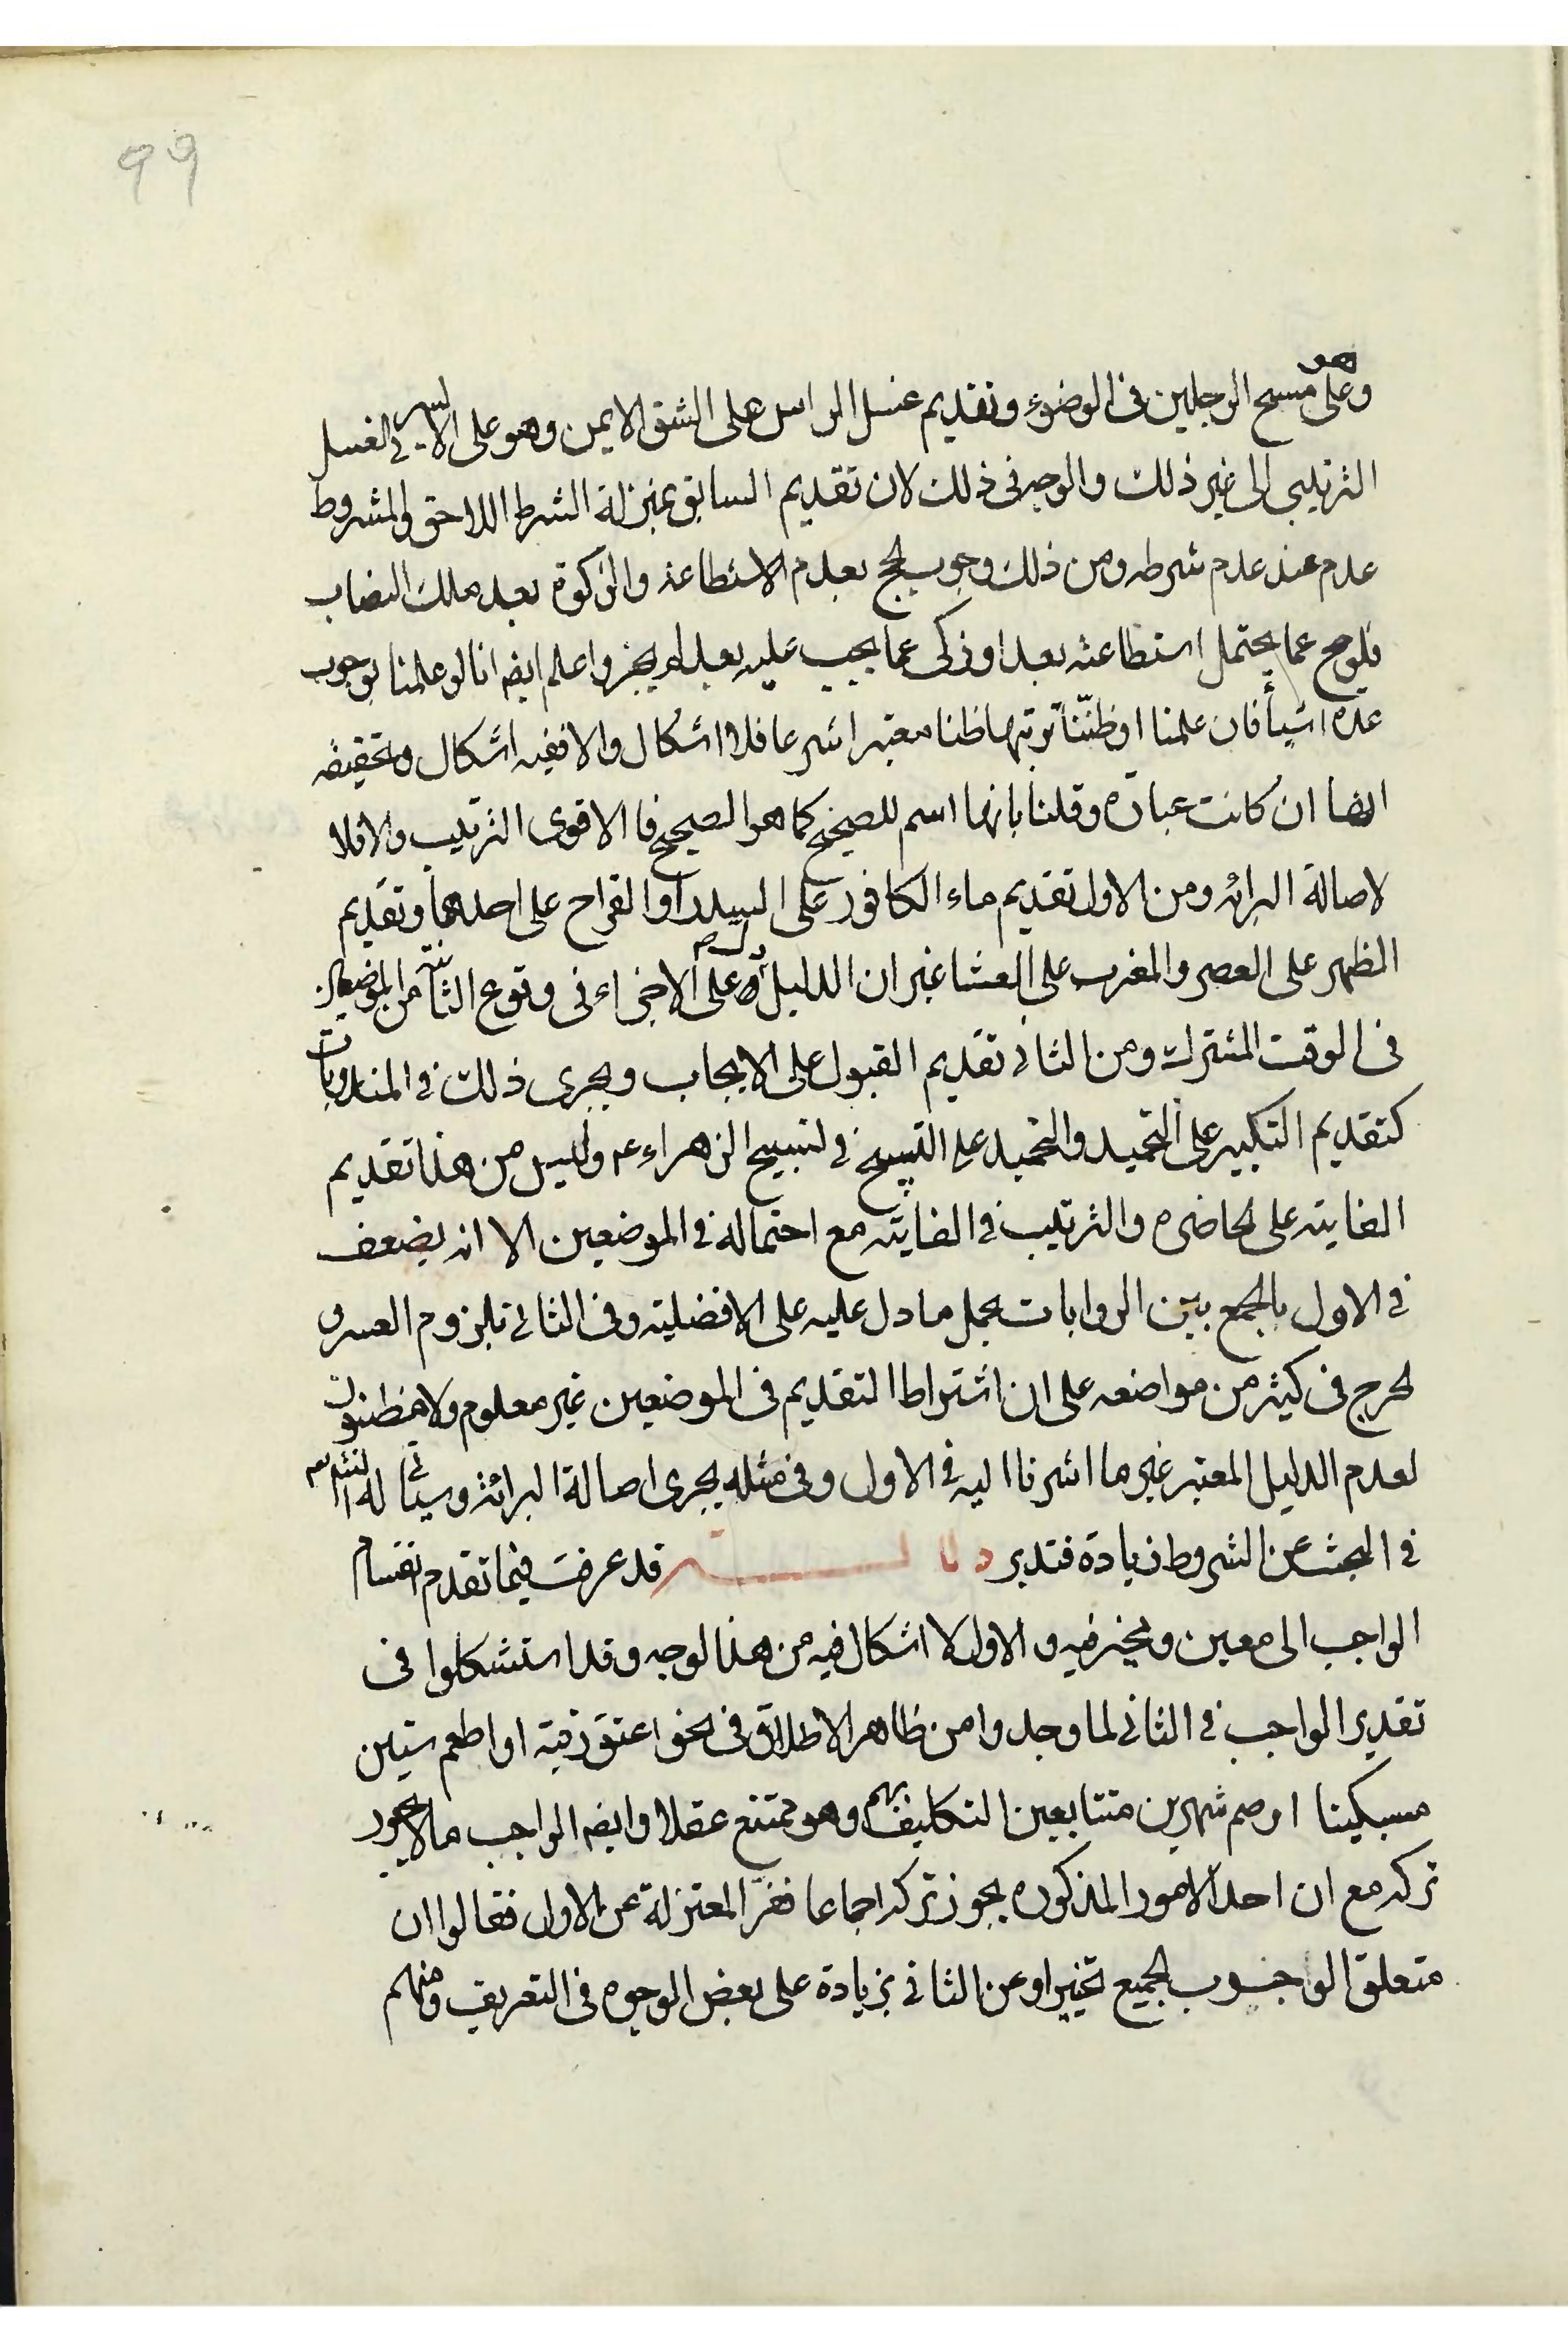 99
وهو على مسح الرجلين فى الوضوء وتقديم غسل الراس على الشق الايمن وهو على الايسر فى الغسل
الترتيبى الى غير ذلك والوجه فى ذلك لان تقديم السابق بمنزلة الشرط اللاحق والمشروط
عدم عند عدم شرطه ومن ذلك وجوب الحج بعدم الاستطاعة والزكوة بعد ملك النصاب
فلو حج عما يحتمل استطاعته بعد او زكى عما يجب عليه بعد لم يجز واعلم ايضا انا لو علمنا بوجوب
عدة اشيأ فان علمنا او ظننّا ترتبها ظنا معتبرا شرعا فلا اشكال والا ففيه اشكال وتحقيقه
انها ان كانت عبادة وقلنا بانها اسم للصحيح كما هو الصحيح فا الاقوى الترتيب والا فلا
لاصالة البرائه ومن الاول تقديم ماء الكافور على السدر او القراح على احدهما وتقديم
الظهر على العصر والمغرب على العشا غير ان الدليل دل على الاجزاء فى وقوع الثانية من الموضعين
فى الوقت المشترك ومن الثانى تقديم القبول على الايجاب ويجرى ذلك فى المندوبات
كتقديم التكبير على التحميد والتحميد على التسبيح فى تسبيح الزهراء ع وليس من هذا تقديم
الفايته على الحاضره والترتيب فى الفايته مع احتماله فى الموضعين الا انه يضعف
فى الاول بالجمع بين الروايات بحمل ما دل عليه على الافضليته وفى الثانى بلزوم العسر و
الحرج فى كثير من مواضعه على ان اشتراط التقديم فى الموضعين غير معلوم ولا مظنون
لعدم الدليل المعتبر غير ما اشرنا اليه فى الاول وفى مثله يجرى اصالة البرائة وسيأتى له انشاء الله
فى البحث عن الشروط زيادة فتدبر قد عرفت فيما تقدم انقسام
الواجب الى معين ومخير فيه و الاول لا اشكال فيه من هذا لوجه وقد استشكلوا فى
تقدير الواجب فى الثانى لما وجدوا من ظاهر الاطلاق فى نحو اعتق رقبة او اطعم ستين
مسكينا او صم شهرين متتابعين التكليف بمبهم وهو ممتنع عقلا وايضا الواجب ما لا يجوز
تركه مع ان احد الامور المذكوره يجوز تركه اجماعا ففرّ المعتزلة عن الاول فقالوا ان
متعلق الوجوب الجميع تخييرا وعن الثانى بزيادة على بعض الوجوه فى التعريف ومنهم